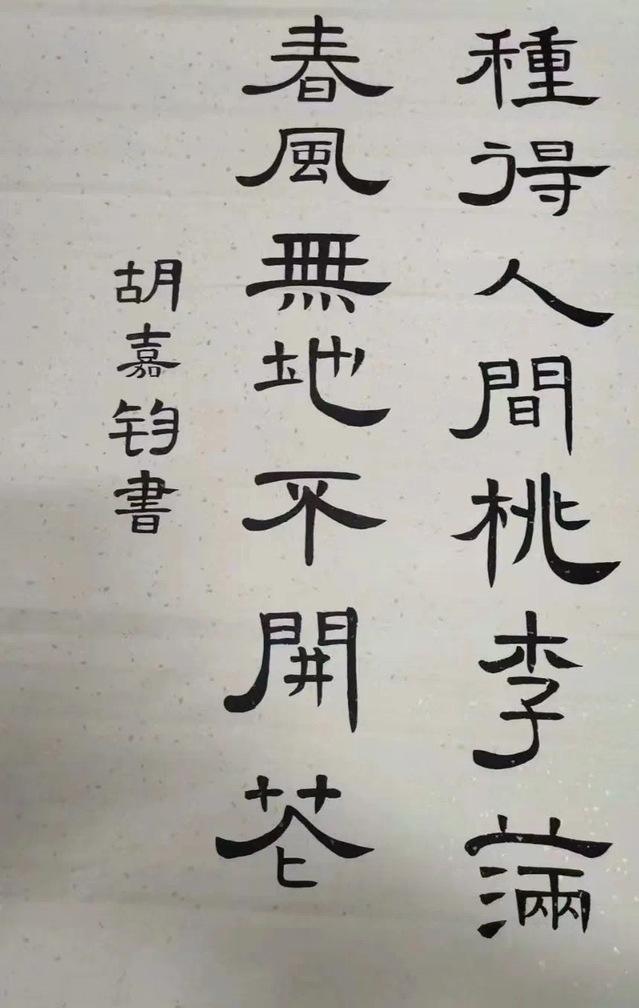 種得人間桃李滿
春風無地不開花
胡嘉钧書